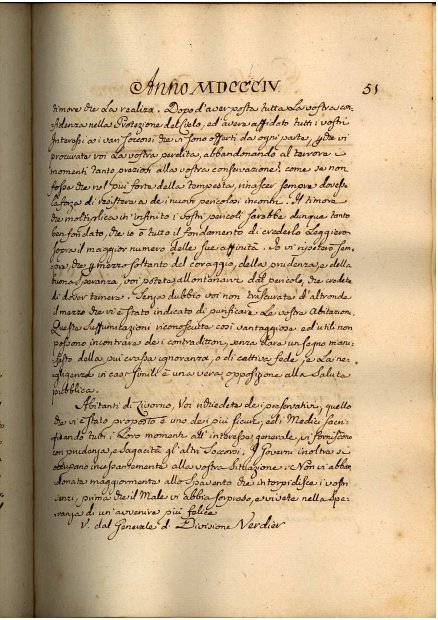 Anno MDCCCIV. 51
timore che la realizza. Dopo d'aver posta tutta la vostra con-
fidenza nella Protezione del Cielo, ed avere affidato tutti i vostri
Interessi ai vari soccorsi che vi son offerti da ogni parte, perche vi
procurate voi la vostra perdita, abbandonando al terrore i
momenti tanto preziosi alla vostra conservazione? come se non
fosse che nel più forte della tempesta, rinascer sempre dovesse
la forza di resistere a dei nuovi pericolosi incontri. Il timore
che moltiplica in infinito i vostri pericoli sarebbe dunque tanto
ben fondato, che io ò tutto il fondamento di crederlo Leggiero
sopra il maggior numero delle sue Io vi ripeterò sem-
pre, che per mezzo soltanto del coraggio, della prudenza e della
buona speranza, voi potete allontanarvi dal pericolo, che credete
di dover temere. Senza dubbio voi non trascurate d'altronde
il mezzo che vi è stato indicato di purificare la vostra Abitazione.
Queste Suffumicazioni riconosciute così vantaggiose ed utili non
possono incontrare dei contradittori, senza dare un segno mani-
festo della più crassa ignoranza, o di cattiva fede, e la ne-
gligenza in casi simili è una vera opposizione alla Salute
pubblica.
Abitanti di Livorno, Voi richiedete dei preservativi, quello
che vi è stato proposto è uno dei più sicuri, ed i Medici sacri-
ficando tutti i Loro momenti all'interesse generale, vi forniscono
con prudenza, e sagacità gl'altri Soccorsi. I Governi inoltre si
occupano incessantemente alla vostra situazione. Non vi abban-
donate maggiormente allo spavento che intorpidisce i vostri
sensi, prima che il Male vi abbia sorpreso, e vivete nella Spe-
ranza di un'avvenire più felice
V. dal Generale di Divisione Verdier